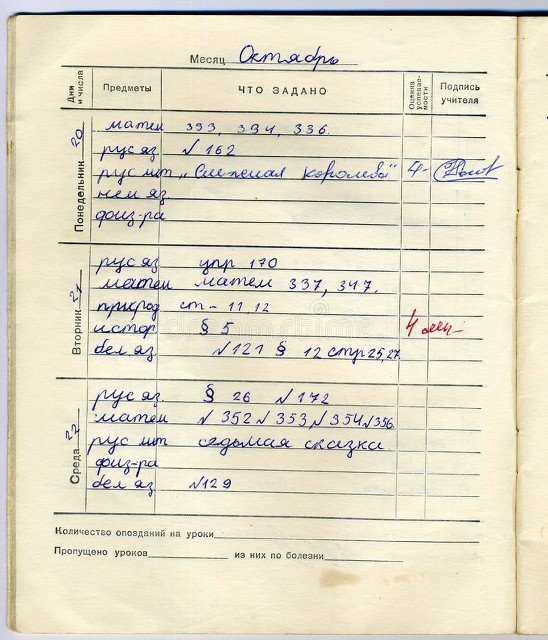 Месяц Октябрь
Дни и числа Предметы ЧТО ЗАДАНО Оценка успеваемости Подпись учителя
Понедельник 20
матем 333, 334, 336.
рус яз № 162
рус лит „Снежная королева" 4-
нем яз.
физ-ра
Вторник 21
рус яз упр 170
матем матем 337, 347.
природ ст - 11, 12
истор § 5 4
бел яз №121 § 12 стр 25, 27.
Среда 22
рус яз. § 26 №172
матем №352 №353, №354, №356.
рус лит седьмая сказка
физ-ра
бел яз №129
Количество опозданий на уроки
Пропущено уроков из них по болезни